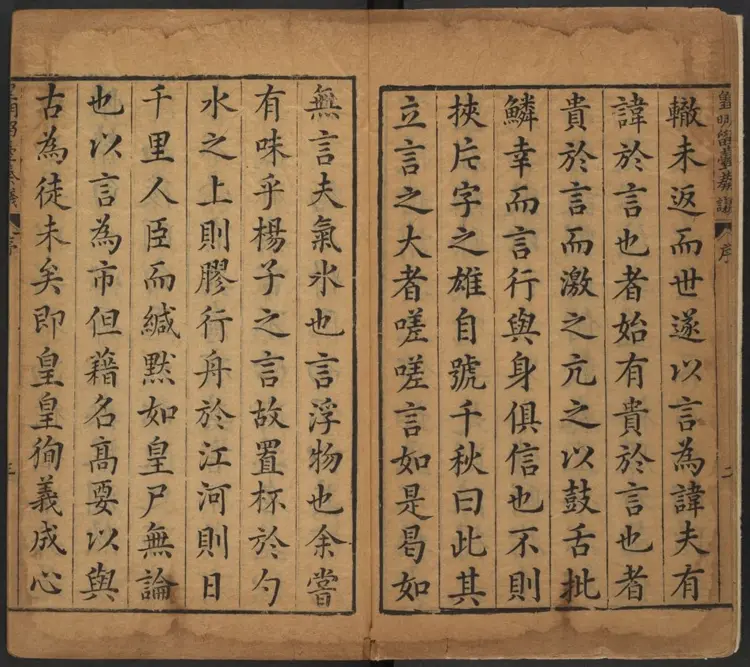 皇明留臺奏議
序
二
轍未返而世遂以言為諱夫有
諱於言也者始有貴於言也者
貴於言而激之亢之以鼓舌批
鱗幸而言行與身俱信也不則
挾片字之雄自號千秋曰此其
立言之大者嗟嗟言如是曷如
無言夫氣水也言浮物也余嘗
有味乎楊子之言故置杯於勺
水之上則膠行舟於江河則日
千里人臣而緘默如皇尸無論
也以言為市但藉名高要以與
古為徒未矣即皇皇徇義成心
序
三